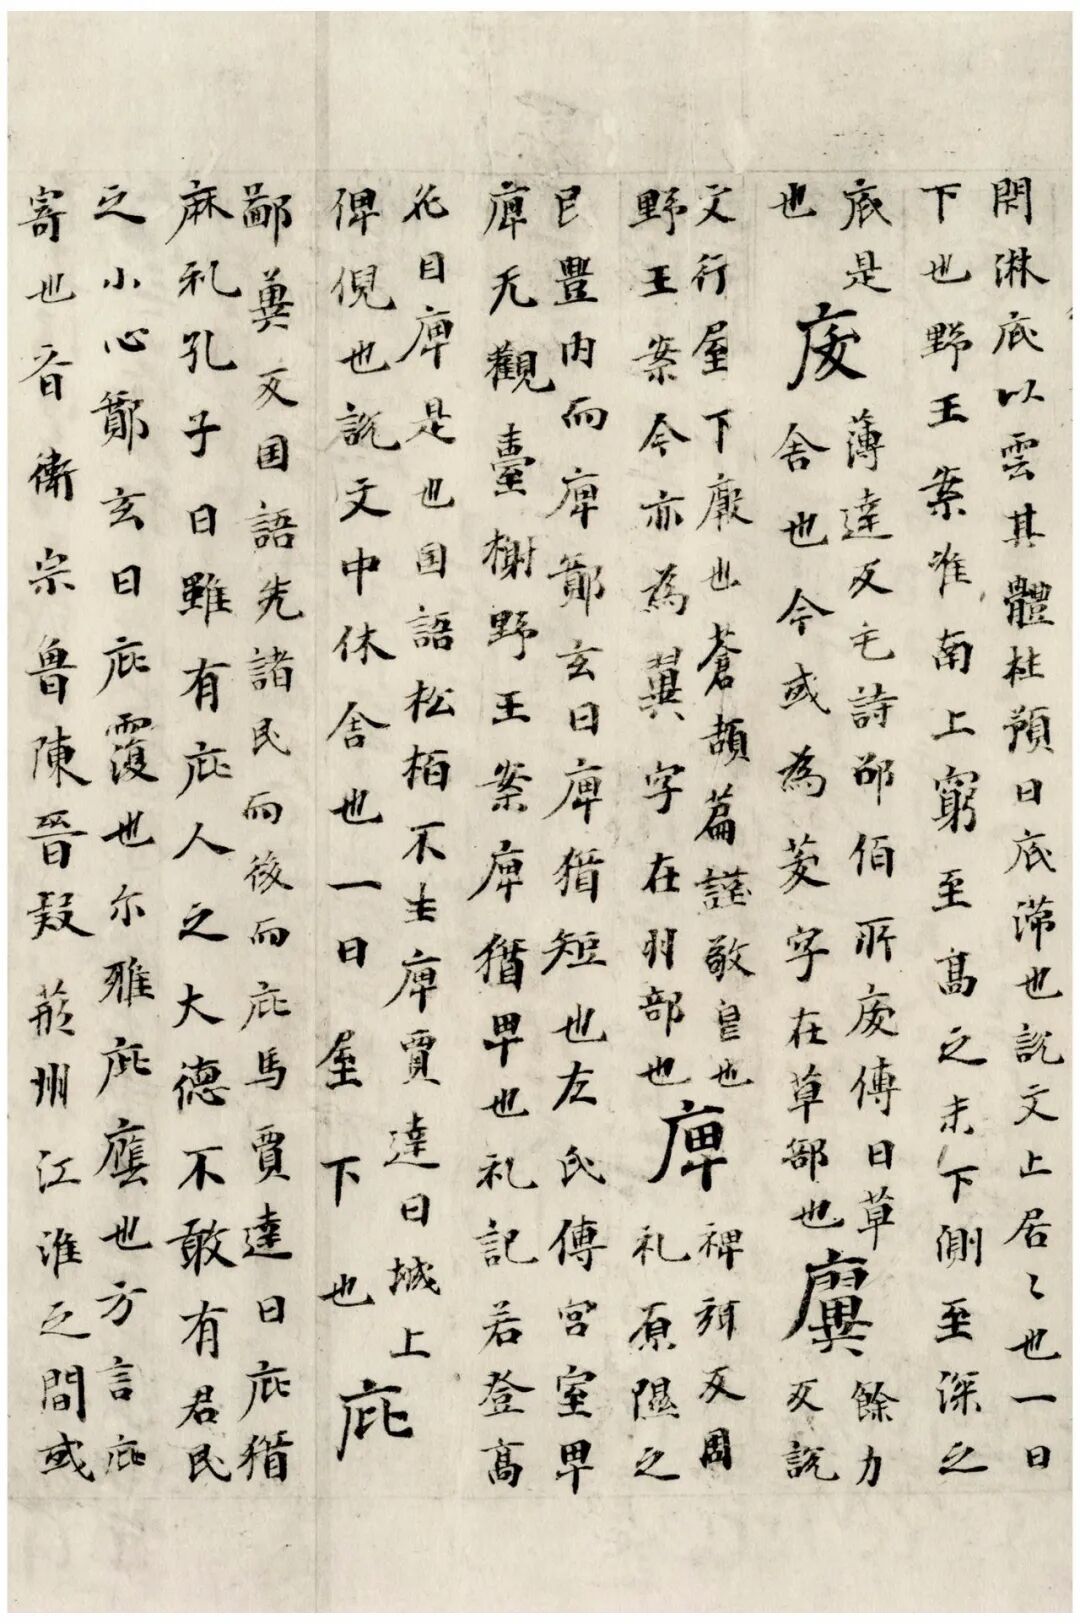 閇淋底以雲其體杜預曰底滯也說文止居〻也一曰
下也野王案淮南上窮至高之末下側至深之
底是 废 薄達反毛詩邵伯所废傳曰草
也 舍也今或為茇字在草部也 廙 餘力反說
文行屋下廄也蒼頡篇謹敬皃也
野王案今亦為翼字在羽部也 庳 裨弭反周礼原隰之
民豐肉而庳鄭玄曰庳猶短也左氏傳宮室卑
庳无觀臺榭野王案庳猶卑也礼記若登高
北目庳是也国語松栢不生庳賈逵曰城上
俾倪也說文中休舍也一曰屋下也 庇
鄙冀反国語先諸民而後而庇馬賈逵曰庇猶
麻礼孔子曰雖有庇人之大德不敢有君民
之小心鄭玄曰庇覆也尒雅庇廕也方言庇
寄也音衛宋魯陳晉 荊州江淮之間或